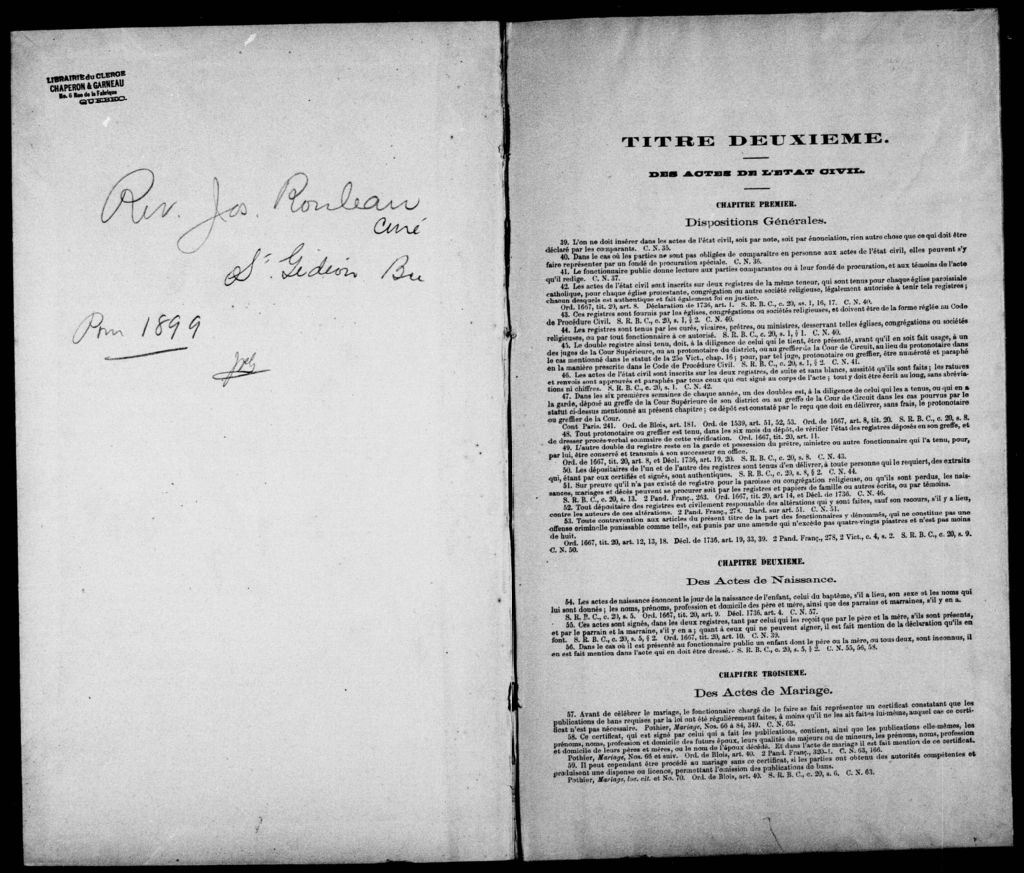 LIBRAIRIE du CLERGE
CHAPERON & GARNEAU
No. 6 Rue de la Fabrique
QUEBEC.
Rev. Jos. Rouleau
Curé
St. Gédéon Bce
Pour 1899
TITRE DEUXIEME.
DES ACTES DE L'ETAT CIVIL.
CHAPITRE PREMIER.
Dispositions Générales.
39. L'on ne doit insérer dans les actes de l'état civil, soit par note, soit par énonciation, rien autre chose que ce qui doit être
déclaré par les comparants. C. N. 35.
40. Dans le cas où les parties ne sont pas obligées de comparaître en personne aux actes de l'état civil, elles peuvent s'y
faire représenter par un fondé de procuration spéciale. C. N. 36.
41. Le fonctionnaire public donne lecture aux parties comparantes ou à leur fondé de procuration, et aux témoins de l'acte
qu'il redige. C. N. 37.
42. Les actes de l'état civil sont inscrits sur deux registres de la même teneur, qui sont tenus pour chaque église paroissiale
catholique, pour chaque église protestante, congrégation ou autre société religieuse, légalement autorisée à tenir tels registres ;
chacun desquels est authentique et fait également foi en justice.
Ord. 1667, tit. 20, art. 8. Déclaration de 1736, art. 1. S. R. B. C., c. 20, ss. 1, 16, 17. C. N. 40.
43. Ces registres sont fournis par les églises, congrégations ou sociétés religieuses, et doivent être de la forme réglée au Code
de Procédure Civil. S. R. B. C., c. 20, s. 1, § 2. C. N. 40.
44. Les registres sont tenus par les curés, vicaires, prêtres, ou ministres, desservant telles églises, congrégations ou sociétés
religieuses, ou par tout fonctionnaire à ce autorisé. S. R. B. C., c. 20, s. 1, § 1. C. N. 40.
45. Le double registre ainsi tenu, doit, à la diligence de celui qui le tient, être présenté, avant qu'il en soit fait usage, à un
des juges de la Cour Supérieure, ou au protonotaire du district, ou au greffier de la Cour de Circuit, au lieu du protonotaire dans
le cas mentionné dans le statut de la 25e Vict., chap. 16 ; pour, par tel juge, protonotaire ou greffier, être numéroté et paraphé
en la manière prescrite dans le Code de Procédure Civil. S. R. B. C., c. 20, s. 1, § 2. C. N. 41.
46. Les actes de l'état civil sont inscrits sur les deux registres, de suite et sans blancs, aussitôt qu'ils sont faits ; les ratures
et renvois sont approuvés et paraphés par tous ceux qui ont signé au corps de l'acte ; tout y doit être écrit au long, sans abrévia-
tions ni chiffres. S. R. B. C., c. 20, s. 1. C. N. 42.
47. Dans les six premières semaines de chaque année, un des doubles est, à la diligence de celui qui les a tenus, ou qui en a
la garde, déposé au greffe de la Cour Supérieure de son district ou au greffe de la Cour de Circuit dans les cas pourvus par le
statut ci-dessus mentionné au présent chapitre ; ce dépôt est constaté par le reçu que doit en délivrer, sans frais, le protonotaire
ou greffier de la Cour.
Cout Paris. 241. Ord. de Blois, art. 181. Ord. de 1539, art. 51, 52, 53. Ord. de 1667, art. 8, tit. 20. S. R. B. C., c. 20, s. 8.
48. Tout protonotaire ou greffier est tenu, dans les six mois du dépôt, de vérifier l'état des registres déposés en son greffe, et
de dresser procès-verbal sommaire de cette vérification. Ord. 1667, tit. 20, art. 11.
49. L'autre double du registre reste en la garde et possession du prêtre, ministre ou autre fonctionnaire qui l'a tenu, pour,
par lui, être conservé et transmis à son successeur en office.
Ord. de 1667, tit. 20, art. 8, et Décl. 1736, art. 19, 20. S. R. B. C., c. 20, s. 8. C. N. 43.
50. Les dépositaires de l'un et de l'autre des registres sont tenus d'en délivrer, à toute personne qui le requiert, des extraits
qui, étant par eux certifiés et signés, sont authentiques. S. R. B. C., c. 20, s. 8, § 2. C. N. 44.
51. Sur preuve qu'il n'a pas existé de registre pour la paroisse ou congrégation religieuse, ou qu'ils sont perdus, les nais-
sances, mariages et décès peuvent se procurer soit par les registres et papiers de famille ou autres écrits, ou par témoins.
S. R. B. C., c. 20, s. 13. 2 Pand. Franç., 263. Ord. 1667, tit. 20, art 14, et Décl. de 1736. C. N. 46.
52. Tout dépositaire des registres est civilement responsable des altérations qui y sont faites, sauf son recours, s'il y a lieu,
contre les auteurs de ces altérations. 2 Pand. Franç., 278. Dard. sur art. 51. C. N. 51.
53. Toute contravention aux articles du présent titre de la part des fonctionnaires y dénommés, qui ne constitue pas une
offense criminelle punissable comme telle, est punis par une amende qui n'excède pas quatre-vingts piastres et n'est pas moins
de huit.
Ord. 1667, tit. 20, art. 12, 13, 18. Décl. de 1736, art. 19, 33, 39. 2 Pand. Franç., 278, 2 Vict., c. 4, s. 2. S. R. B. C., c. 20, s. 9.
C. N. 50.
CHAPITRE DEUXIEME.
Des Actes de Naissance.
54. Les actes de naissance énoncent le jour de la naissance de l'enfant, celui du baptême, s'il a lieu, son sexe et les noms qui
lui sont donnés ; les noms, prénoms, profession et domicile des père et mère, ainsi que des parrains et marraines, s'il y en a.
S. R. B. C., c. 20, s. 5. Ord. 1667, tit. 20, art. 9. Décl. 1736, art. 4. C. N. 57.
55. Ces actes sont signés, dans les deux registres, tant par celui qui les reçoit que par le père et la mère, s'ils sont présents,
et par le parrain et la marraine, s'il y en a ; quant à ceux qui ne peuvent signer, il est fait mention de la déclaration qu'ils en
font. S. R. B. C., c. 20, s. 5, § 2. Ord. 1667, tit. 20, art. 10. C. N. 39.
56. Dans le cas où il est présenté au fonctionnaire public un enfant dont le père ou la mère, ou tous deux, sont inconnus, il
en est fait mention dans l'acte qui en doit être dressé. S. R. B. C., c. 20, s. 5, § 2. C. N. 55, 56, 58.
CHAPITRE TROISIEME.
Des Actes de Mariage.
57. Avant de célébrer le mariage, le fonctionnaire chargé de le faire se fait représenter un certificat constatant que les
publications de bans requises par la loi ont été régulièrement faites, à moins qu'il ne les ait faites lui-même, auquel cas ce certi-
ficat n'est pas nécessaire. Pothier, Mariage, Nos. 66 à 84, 349. C. N. 63.
58. Ce certificat, qui est signé par celui qui a fait les publications, contient, ainsi que les publications elle-mêmes, les
prénoms, noms, profession et domicile des futurs époux, leurs qualités de majeurs ou de mineurs, les prénoms, noms, profession
et domicile de leurs pères et mères, ou le nom de l'époux décédé. Et dans l'acte de mariage il est fait mention de ce certificat.
Pothier, Mariage, Nos. 66 et suiv. Ord. de Blois, art. 40. 2 Pand. Franç., 320-1. C. N. 63, 166.
59. Il peut cependant être procédé au mariage sans ce certificat, si les parties ont obtenu des autorités compétentes et
produisent une dispense ou licence, permettant l'omission des publications de bans.
Pothier, Mariage, loc. cit. et No. 70. Ord. de Blois, art. 40. S. R. B. C., c. 20, s. 6. C. N. 63.